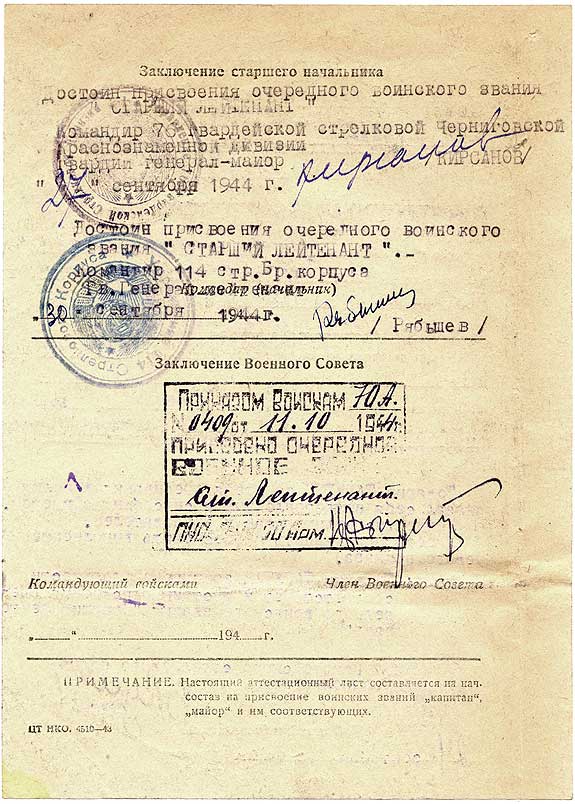 Заключение старшего начальника
Достоин присвоения очередного воинского звания
" СТАРШИЙ ЛЕЙТЕНАНТ "
Командир 76 гвардейской стрелковой Черниговской
Краснознаменной дивизии
гвардии генерал-майор Кирсанов /КИРСАНОВ/
" 27 " сентября 1944 г.
Достоин присвоения очередного воинского
звания " СТАРШИЙ ЛЕЙТЕНАНТ ".
Командир 114 стр.Бр.корпуса
Гв.Генерал
Командир (начальник)
„ 30 " сентября 1944 г. Рябышев / Рябышев /
Заключение Военного Совета
Приказом Войскам 70 А.
N 0409 от 11.10 1944 г.
присвоено очередное
военное
Ст. Лейтенант.
Командующий войсками Член Военного Совета
„ " 194 г.
ПРИМЕЧАНИЕ. Настоящий аттестационный лист составляется на нач-
состав на присвоение воинских званий „капитан“,
„майор“ и им соответствующих.
ЦТ НКО. 4510—43